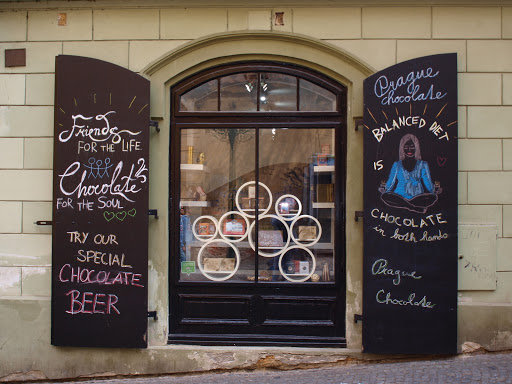 Friends
FOR THE LIFE
Chocolate
FOR THE SOUL
TRY OUR
SPECIAL
CHOCOLATE
BEER
Prague
chocolate
BALANCED DIET
IS
CHOCOLATE
in both hands
Prague
Chocolate